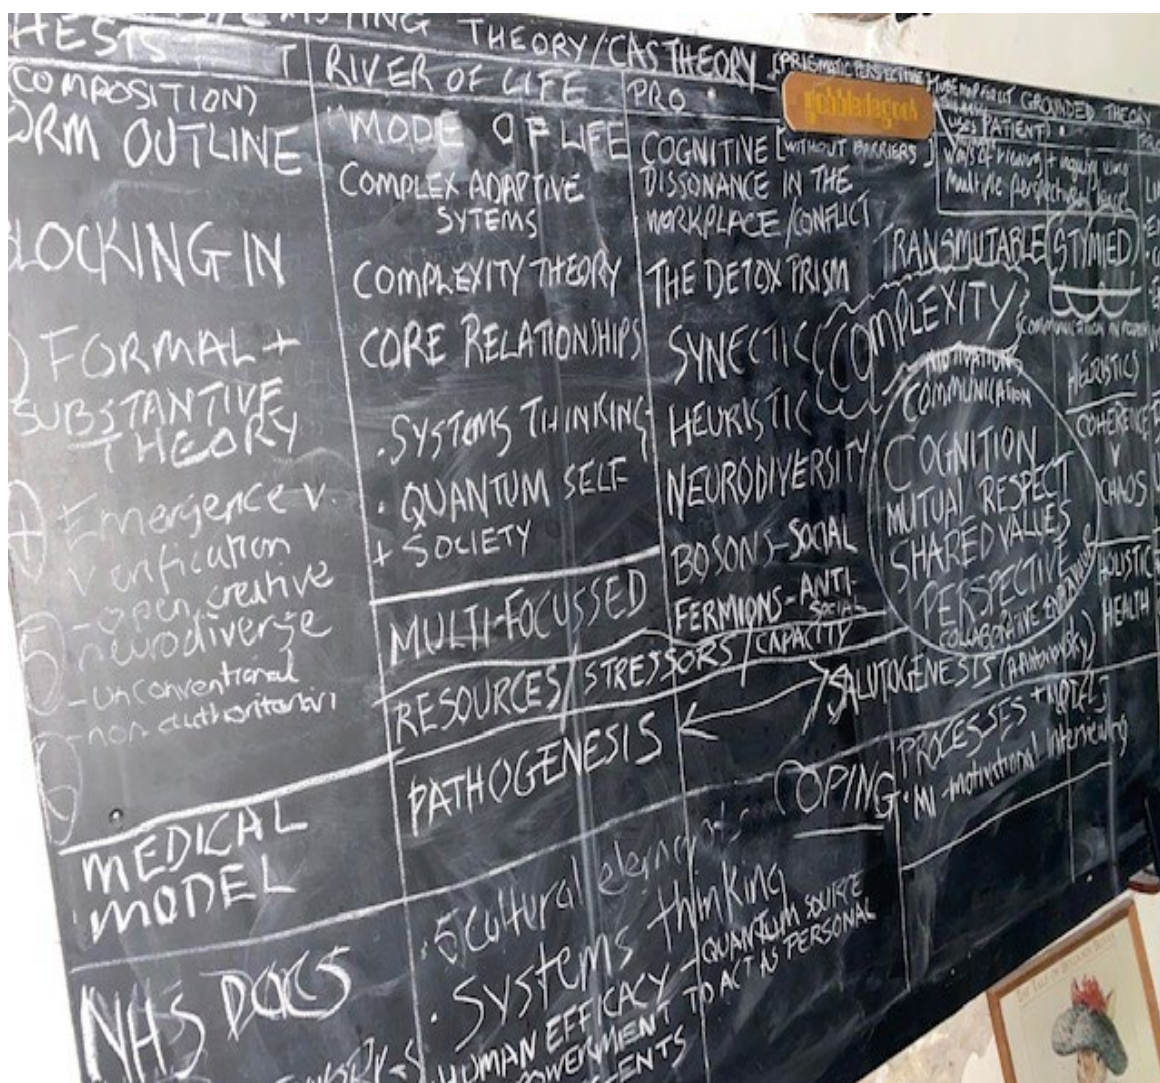 THEORY/CAS THEORY [PRISMATIC PERSPECTIVE]
GROUNDED THEORY
HESIS
T
(COMPOSITION)
ORM OUTLINE
LOCKING IN
FORMAL +
SUBSTANTIVE
THEORY
Emergence v.
verification
-open, creative
neurodiverge
-unconventional
MEDICAL
MODEL
NHS DOCS
RIVER OF LIFE
MODE OF LIFE
COMPLEX ADAPTIVE
SYTEMS
COMPLEXITY THEORY
CORE RELATIONSHIPS
.SYSTEMS THINKING
• QUANTUM SELF
+ SOCIETY
MULTI-FOCUSSED
RESOURCES/STRESSORS/CAPACITY
PATHOGENESIS
• 5 Cultural elements
• Systems thinking
HUMAN EFFICACY - QUANTUM SOURCE
TO ACT AS PERSONAL
PRO
gobbledegook
COGNITIVE [WITHOUT BARRIERS]
DISSONANCE IN THE
WORKPLACE/CONFLICT
THE DETOX PRISM
SYNECTIC
HEURISTIC
NEURODIVERSITY
BOSONS-SOCIAL
FERMIONS-ANTI-
SOCIAL
COPING
USES PATIENT)
ways of viewing + inquiry using
multiple perspectives
TRANSMUTABLE
STYMIED
COMPLEXITY
COMMUNICATION IN
MOTIVATION
COMMUNICATION
COGNITION
MUTUAL RESPECT
SHARED VALUES
PERSPECTIVE
COLLABORATIVE
SALUTOGENESIS (A. Antonovsky)
PROCESSES +
• MI-motivational Interviewing
HERISTICS
COHERENCE
V
CHAOS
HOLISTIC
HEALTH